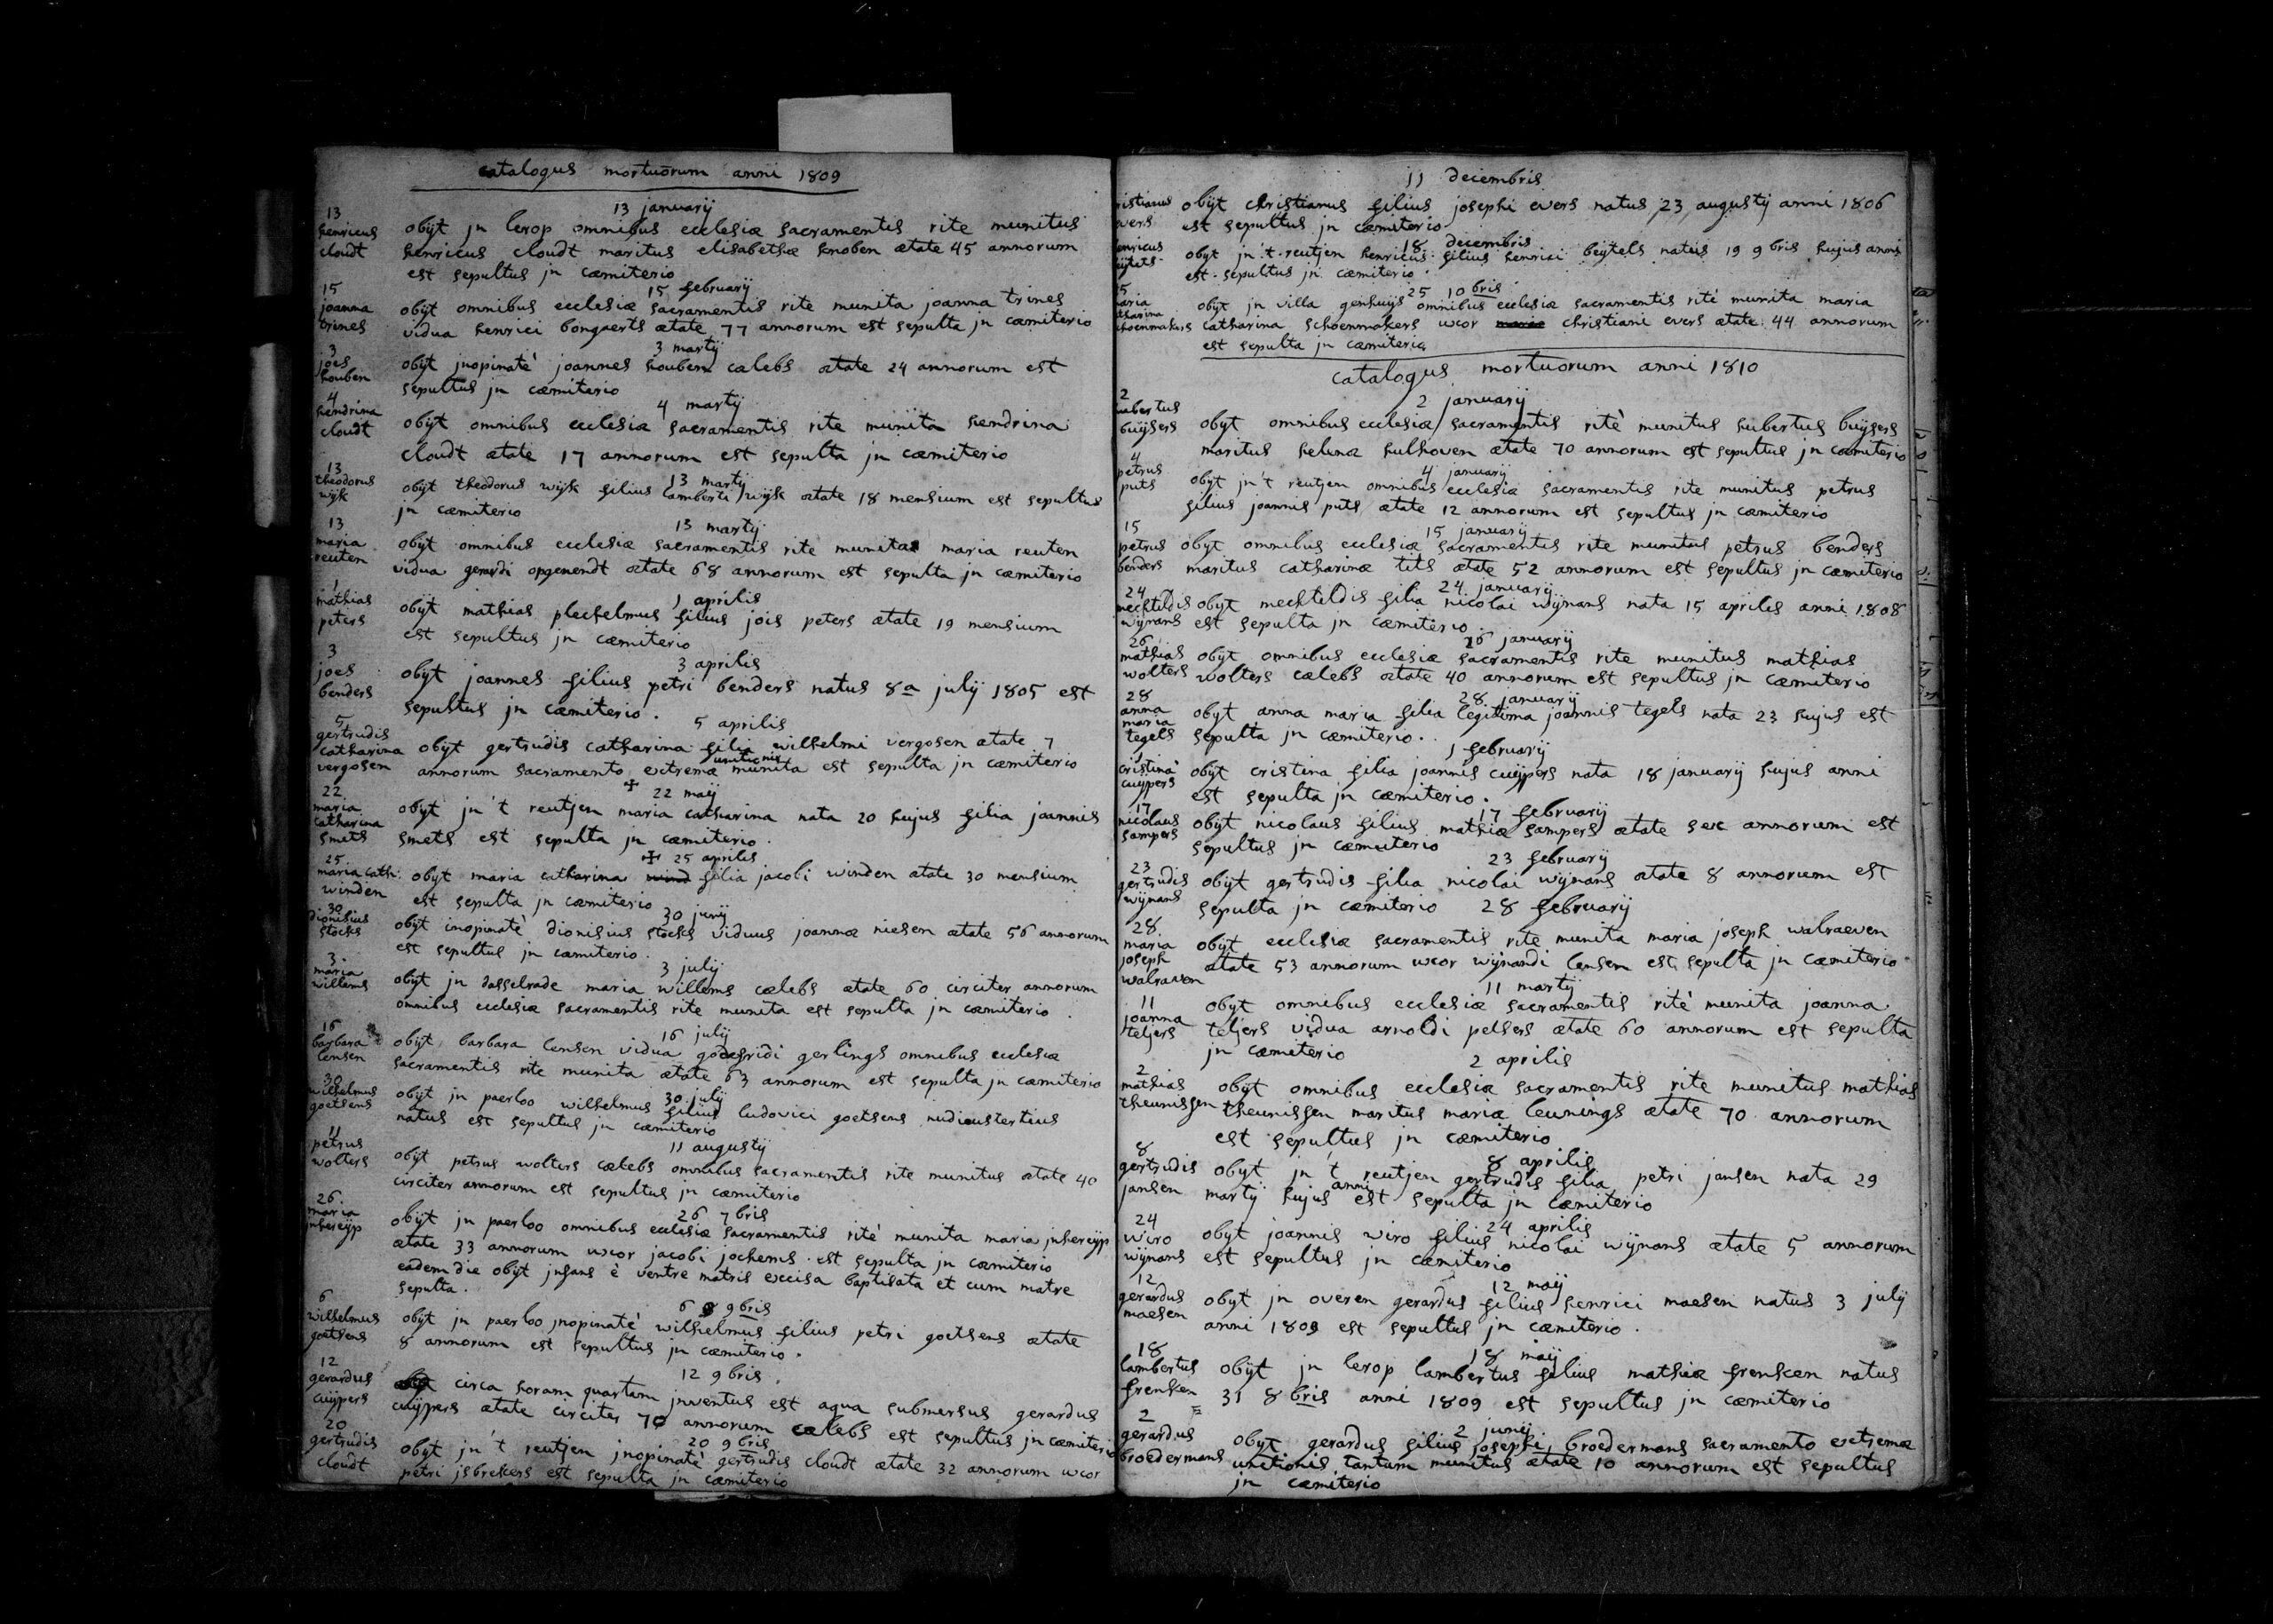 catalogus mortuorum anni 1809
13 januarij
13
henricus
cloudt
obijt jn lerop omnibus ecclesiæ sacramentis rite munitus
henricus cloudt maritus elisabethæ knoben ætate 45 annorum
est sepultus jn cæmiterio
15 februarij
15
joanna
trines
obijt omnibus ecclesiæ sacramentis rite munita joanna trines
vidua henrici bongaerts ætate 77 annorum est sepulta jn cæmiterio
3 martij
3
joes
houben
obijt jnopinatè joannes houben cælebs ætate 24 annorum est
sepultus jn cæmiterio
4 martij
4
hendrina
cloudt
obijt omnibus ecclesiæ sacramentis rite munita hendrina
cloudt ætate 17 annorum est sepulta jn cæmiterio
13 martij
13
theodorus
wijk
obijt theodorus wijk filius lamberti wijk ætate 18 mensium est sepultus
jn cæmiterio
13 martij
13
maria
reuten
obijt omnibus ecclesiæ sacramentis rite munita maria reuten
vidua gerardi opgenendt ætate 68 annorum est sepulta jn cæmiterio
1 aprilis
1
mathias
peters
obijt mathias plechelmus filius jois peters ætate 19 mensium
est sepultus jn cæmiterio
3 aprilis
3
joes
benders
obijt joannes filius petri benders natus 8a julij 1805 est
sepultus jn cæmiterio.
5 aprilis
5
gertrudis
catharina
vergosen
obijt gertrudis catharina filia wilhelmi vergosen ætate 7
annorum sacramento extremæ unctionis munita est sepulta jn cæmiterio
+ 22 maij
22
maria
catharina
smets
obijt jn't reutjen maria catharina nata 20 hujus filia joannis
smets est sepulta jn cæmiterio.
+ 25 aprilis
25
maria cath:
winden
obijt maria catharina wind filia jacobi winden ætate 30 mensium
est sepulta jn cæmiterio
30 junij
30
dionisius
stocks
obijt inopinatè dionisius stocks viduus joannæ niesen ætate 56 annorum
est sepultus jn cæmiterio.
3 julij
3
maria
willems
obijt jn dasselrade maria willems cælebs ætate 60 circiter annorum
omnibus ecclesiæ sacramentis rite munita est sepulta jn cæmiterio.
16 julij
16
barbara
lensen
obijt barbara lensen vidua godefridi gerlings omnibus ecclesiæ
sacramentis rite munita ætate 63 annorum est sepulta jn cæmiterio
30 julij
30
wilhelmus
goetsens
obijt jn paerloo wilhelmus filius ludovici goetsens nudiustertius
natus est sepultus jn cæmiterio
11 augustij
11
petrus
wolters
obijt petrus wolters cælebs omnibus sacramentis rite munitus ætate 40
circiter annorum est sepultus jn cæmiterio
26 7bris
26
maria
jnhercyp
obijt jn paerloo omnibus ecclesiæ sacramentis ritè munita maria jnhercyp
ætate 33 annorum uxor jacobi jochems. est sepulta jn cæmiterio
eadem die obijt jnfans è ventre matris excisa baptisata et cum matre
sepulta.
6 9bris
6
wilhelmus
goetsens
obijt jn paerloo jnopinatè wilhelmus filius petri goetsens ætate
8 annorum est sepultus jn cæmiterio.
12 9bris.
12
gerardus
cuijpers
circa horam quartam jnventus est aqua submersus gerardus
cuijpers ætate circiter 70 annorum cælebs est sepultus jn cæmiterio
20 9bris
20
gertrudis
cloudt
obijt jn't reutjen jnopinatè gertrudis cloudt ætate 32 annorum uxor
petri jsbrekers est sepulta jn cæmiterio
11 decembris
ristianus
evers
obijt christianus filius josephi evers natus 23 augustij anni 1806
est sepultus jn cæmiterio
18 decembris
enricus
eijtels
obijt jn't reutjen henricus filius henrici beijtels natus 19 9bris hujus anni
est sepultus jn cæmiterio.
25 10bris.
25
aria
tharina
choenmakers
obijt jn villa genhuijs omnibus ecclesiæ sacramentis ritè munita maria
catharina schoenmakers uxor christiani evers ætate 44 annorum
est sepulta jn cæmiterio
catalogus mortuorum anni 1810
2 januarij
2
hubertus
buijsers
obijt omnibus ecclesiæ sacramentis ritè munitus hubertus buijsers
maritus helenæ hulhoven ætate 70 annorum est sepultus jn cæmiterio
4 januarij
4
petrus
puts
obijt jn't reutjen omnibus ecclesiæ sacramentis rite munitus petrus
filius joannis puts ætate 12 annorum est sepultus jn cæmiterio
15 januarij
15
petrus
benders
obijt omnibus ecclesiæ sacramentis rite munitus petrus benders
maritus catharinæ tits ætate 52 annorum est sepultus jn cæmiterio
24 januarij
24
mechteldis
wijnans
obijt mechteldis filia nicolai wijnans nata 15 aprilis anni 1808
est sepulta jn cæmiterio.
26 januarij
26
mathias
wolters
obijt omnibus ecclesiæ sacramentis rite munitus mathias
wolters cælebs ætate 40 annorum est sepultus jn cæmiterio
28 januarij
28
anna
maria
tegels
obijt anna maria filia legitima joannis tegels nata 23 hujus est
sepulta jn cæmiterio.
1 februarij
1
cristina
cuijpers
obijt cristina filia joannis cuijpers nata 18 januarij hujus anni
est sepulta jn cæmiterio.
17 februarij
17
nicolaus
sampers
obijt nicolaus filius mathiæ sampers ætate sex annorum est
sepultus jn cæmiterio
23 februarij
23
gertrudis
wijnans
obijt gertrudis filia nicolai wijnans ætate 8 annorum est
sepulta jn cæmiterio
28 februarij
28
maria
joseph
walraven
obijt ecclesiæ sacramentis rite munita maria joseph walraeven
ætate 53 annorum uxor wijnandi lensen est sepulta jn cæmiterio
11 martij
11
joanna
teljers
obijt omnibus ecclesiæ sacramentis ritè munita joanna
teljers vidua arnoldi pelsers ætate 60 annorum est sepulta
jn cæmiterio
2 aprilis
2
mathias
theunissen
obijt omnibus ecclesiæ sacramentis rite munitus mathias
theunissen maritus mariæ leunings ætate 70 annorum
est sepultus jn cæmiterio
8 aprilis
8
gertrudis
jansen
obijt jn't reutjen gertrudis filia petri jansen nata 29
martij hujus anni est sepulta jn cæmiterio
24 aprilis
24
wiro
wijnans
obijt joannis wiro filius nicolai wijnans ætate 5 annorum
est sepultus jn cæmiterio
12 maij
12
gerardus
maesen
obijt jn overen gerardus filius henrici maesen natus 3 julij
anni 1809 est sepultus jn cæmiterio.
18 maij
18
lambertus
frensken
obijt jn lerop lambertus filius mathiæ frensken natus
31 8bris anni 1809 est sepultus jn cæmiterio
2 junij
2
gerardus
broedermans
obijt gerardus filius josephi broedermans sacramento extremæ
unctionis tantum munitus ætate 10 annorum est sepultus
jn cæmiterio